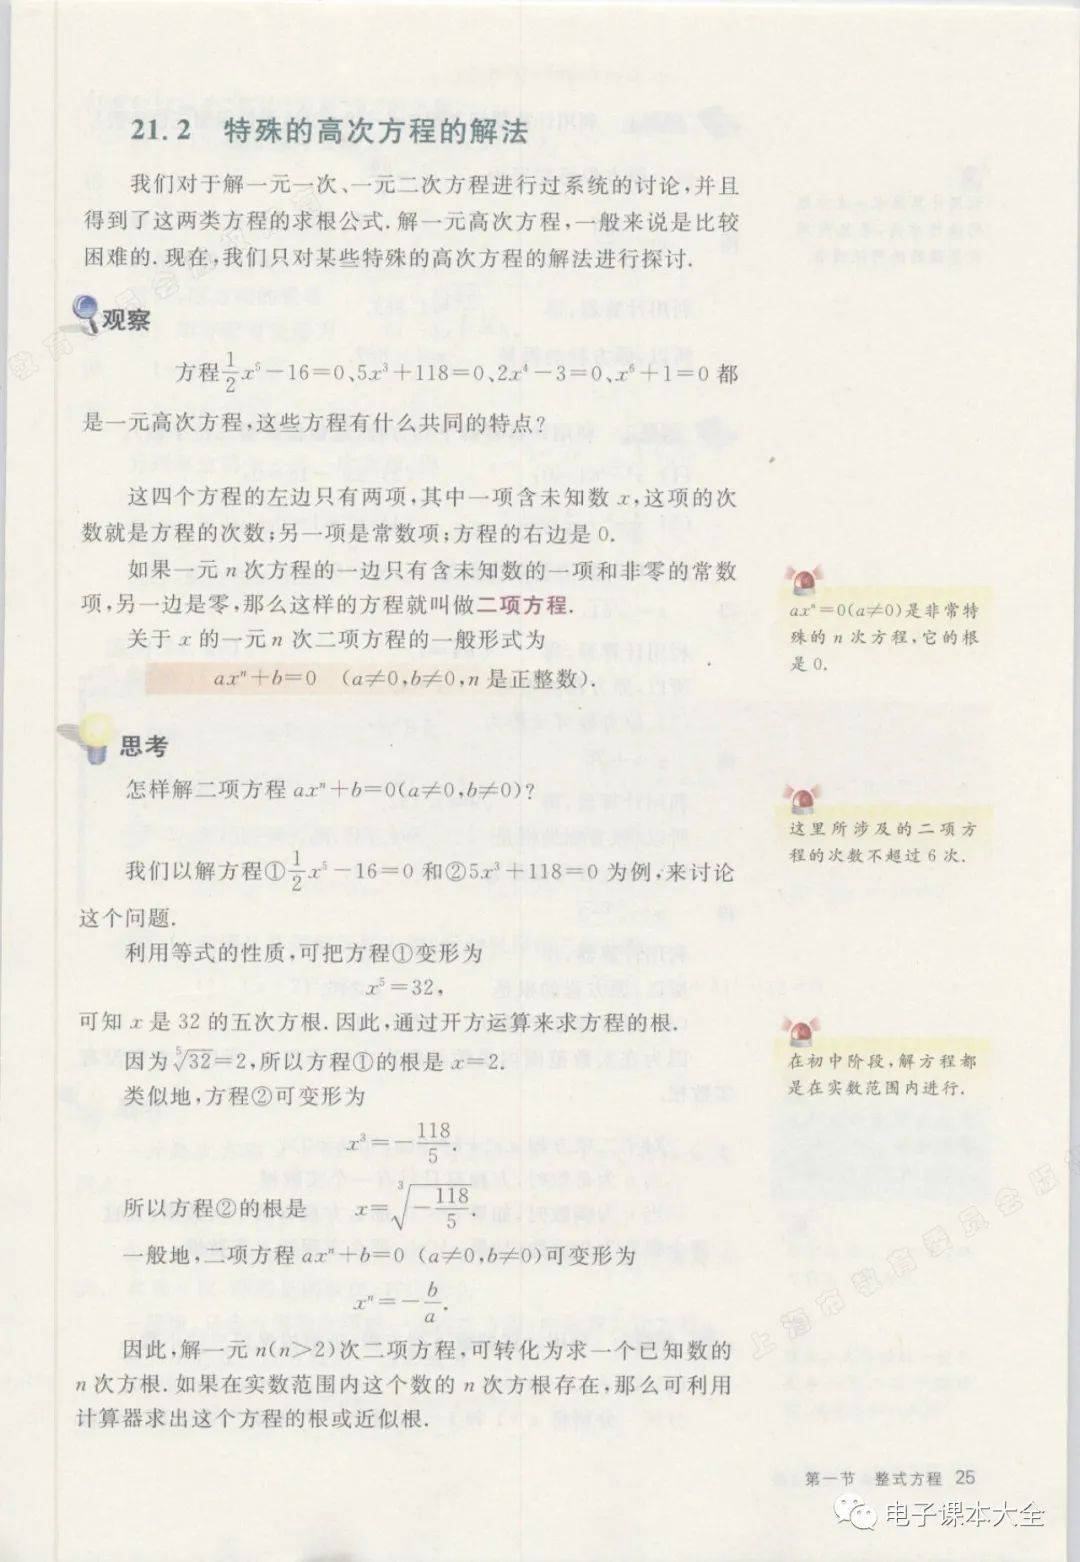 21.2 特殊的高次方程的解法
我们对于解一元一次、一元二次方程进行过系统的讨论,并且
得到了这两类方程的求根公式.解一元高次方程,一般来说是比较
困难的.现在,我们只对某些特殊的高次方程的解法进行探讨.
观察
方程1/2x⁵-16=0、5x³+118=0、2x⁴-3=0、x⁶+1=0都
是一元高次方程,这些方程有什么共同的特点?
这四个方程的左边只有两项,其中一项含未知数x,这项的次
数就是方程的次数;另一项是常数项;方程的右边是0.
如果一元n次方程的一边只有含未知数的一项和非零的常数
项,另一边是零,那么这样的方程就叫做二项方程.
关于x的一元n次二项方程的一般形式为
axⁿ+b=0 (a≠0,b≠0,n是正整数).
axⁿ=0(a≠0)是非常特
殊的n次方程,它的根
是0.
思考
怎样解二项方程axⁿ+b=0(a≠0,b≠0)?
这里所涉及的二项方
程的次数不超过6次.
我们以解方程①1/2x⁵-16=0和②5x³+118=0为例,来讨论
这个问题.
利用等式的性质,可把方程①变形为
x⁵=32,
可知x是32的五次方根.因此,通过开方运算来求方程的根.
因为⁵√32=2,所以方程①的根是x=2.
类似地,方程②可变形为
在初中阶段,解方程都
是在实数范围内进行.
x³=-118/5.
所以方程②的根是 x=³√(-118/5).
一般地,二项方程axⁿ+b=0 (a≠0,b≠0)可变形为
xⁿ=-b/a.
因此,解一元n(n>2)次二项方程,可转化为求一个已知数的
n次方根.如果在实数范围内这个数的n次方根存在,那么可利用
计算器求出这个方程的根或近似根.
第一节 整式方程 25
电子课本大全